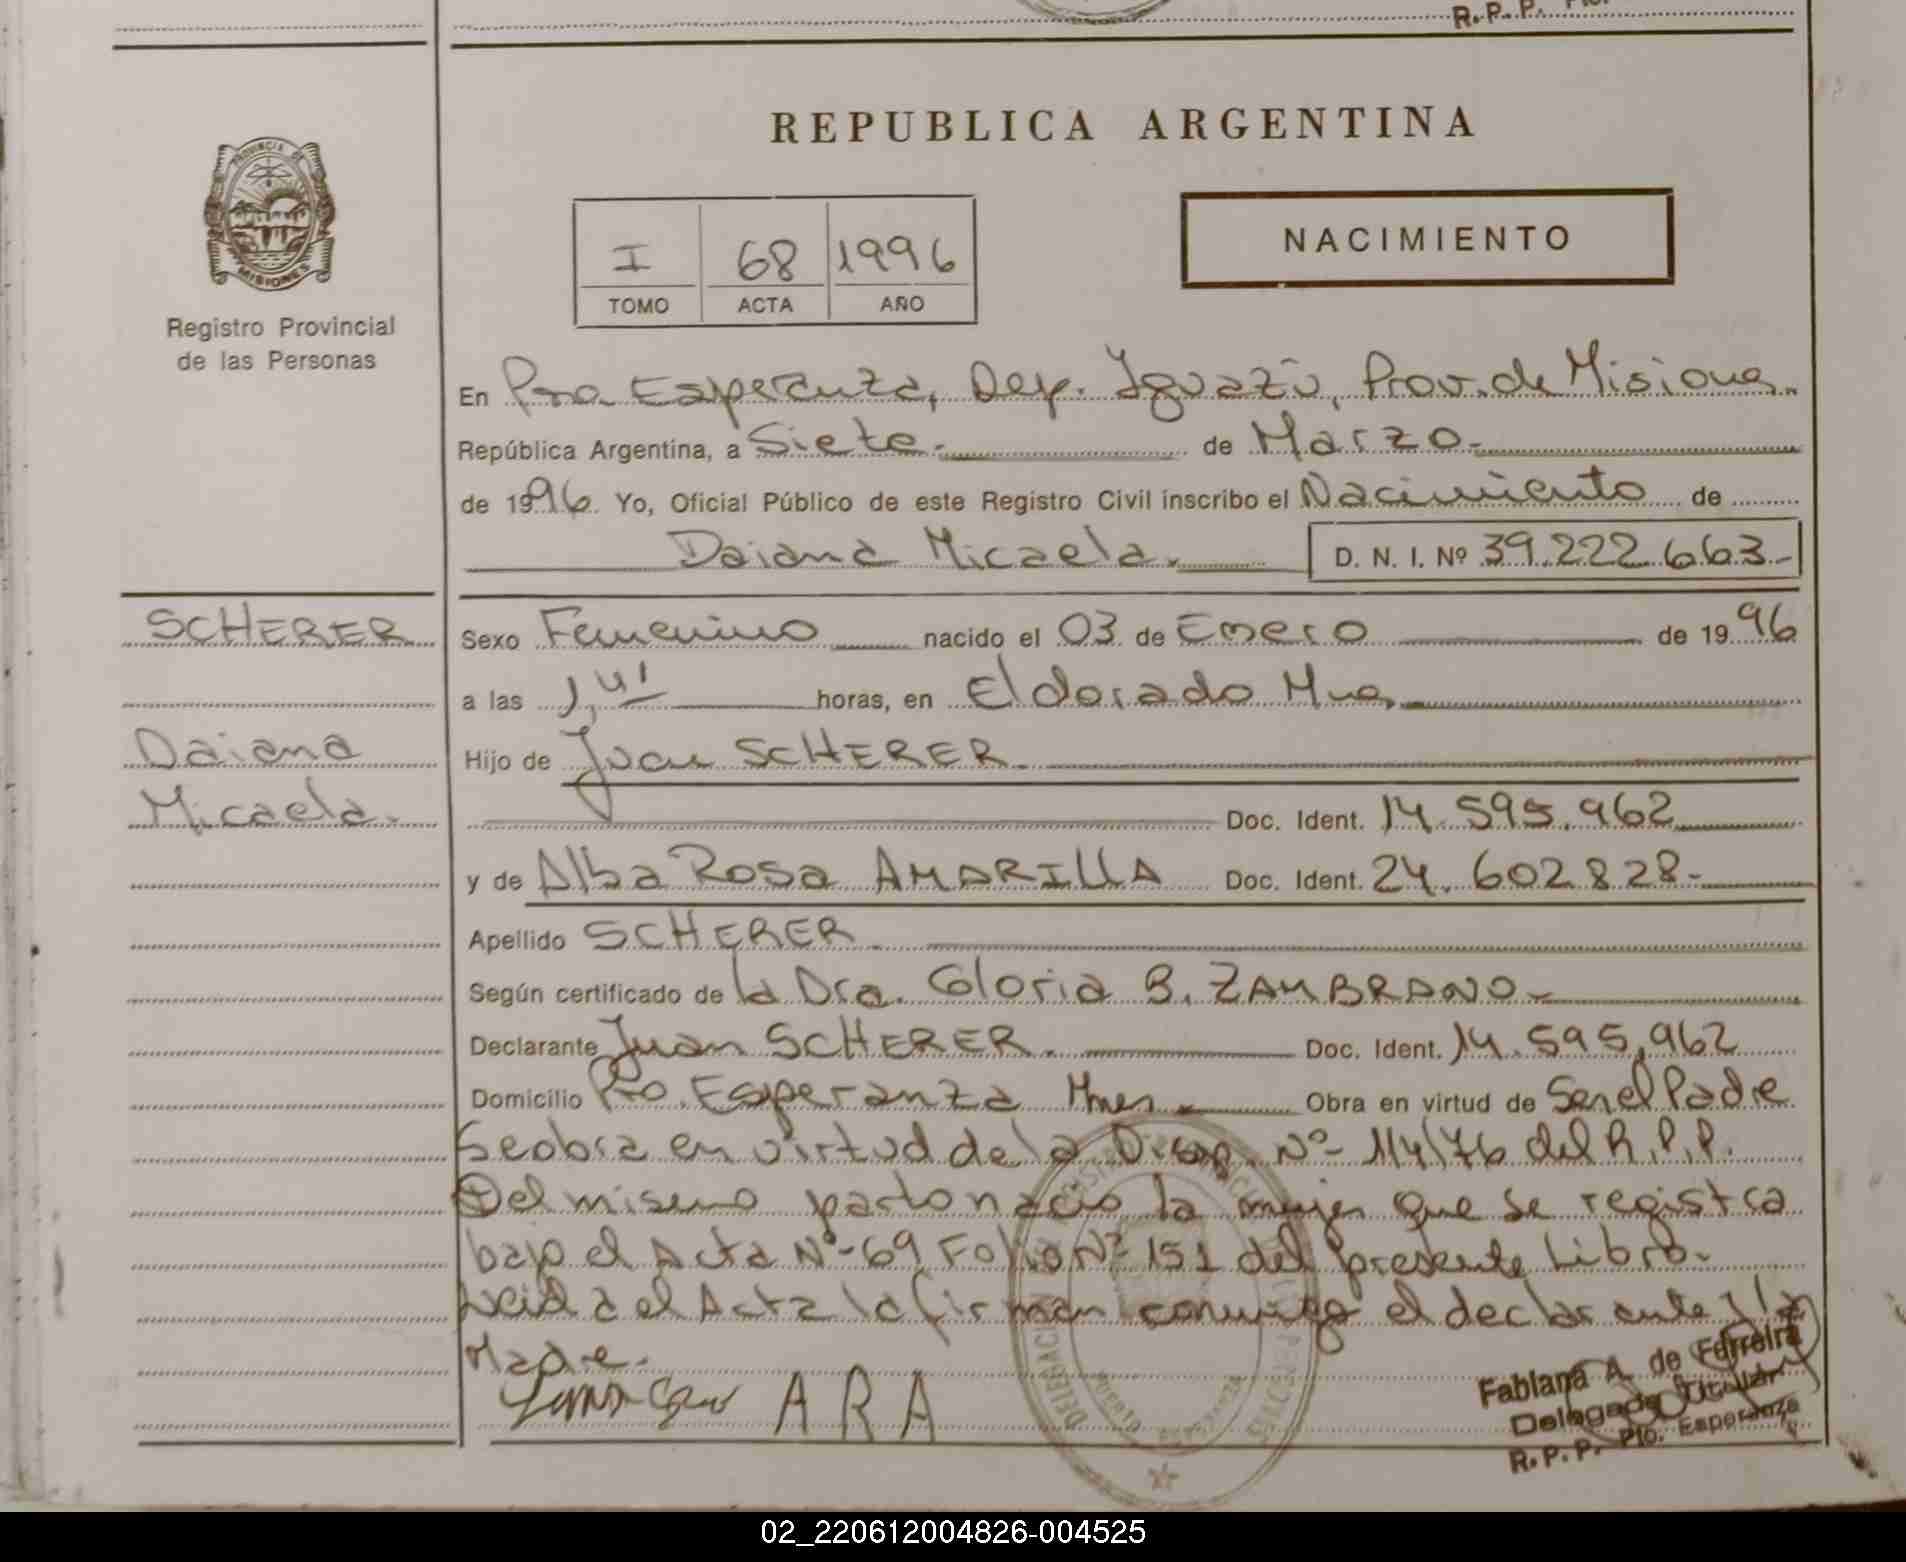 R. P. P. Pto.
REPUBLICA ARGENTINA
PROVINCIA DE
MISIONES
Registro Provincial
de las Personas
I 68 1996
TOMO ACTA AÑO
NACIMIENTO
En Pto. Esperanza, Dep. Iguazú, Prov. de Misiones.
República Argentina, a Siete. de Marzo.
de 1996 Yo, Oficial Público de este Registro Civil inscribo el Nacimiento de
Daiana Micaela. D. N. I. Nº 39.222.663-
SCHERER
Daiana
Micaela.
Sexo Femenino nacido el 03 de Enero de 1996
a las horas, en Eldorado Mnes
Hijo de Juan SCHERER.
Doc. Ident. 14.595.962
y de Alba Rosa AMARILLA Doc. Ident. 24.602.828-
Apellido SCHERER.
Según certificado de la Dra. Gloria B. ZAMBRANO-
Declarante Juan SCHERER. Doc. Ident. 14.595,962
Domicilio Pto. Esperanza Mnes. Obra en virtud de Ser el Padre
Se obra en virtud de la Disp. Nº- 114/76 del R.P.P.
Del mismo parto nació la mujer que se registra
bajo el Acta Nº-69 Folio Nº 151 del presente Libro.
Leida el Acta la firman conmigo el declarante y la
Madre.
A R A
Fabiana A. de Ferreira
Delegada Titular
R. P. P. Pto. Esperanza
02_220612004826-004525